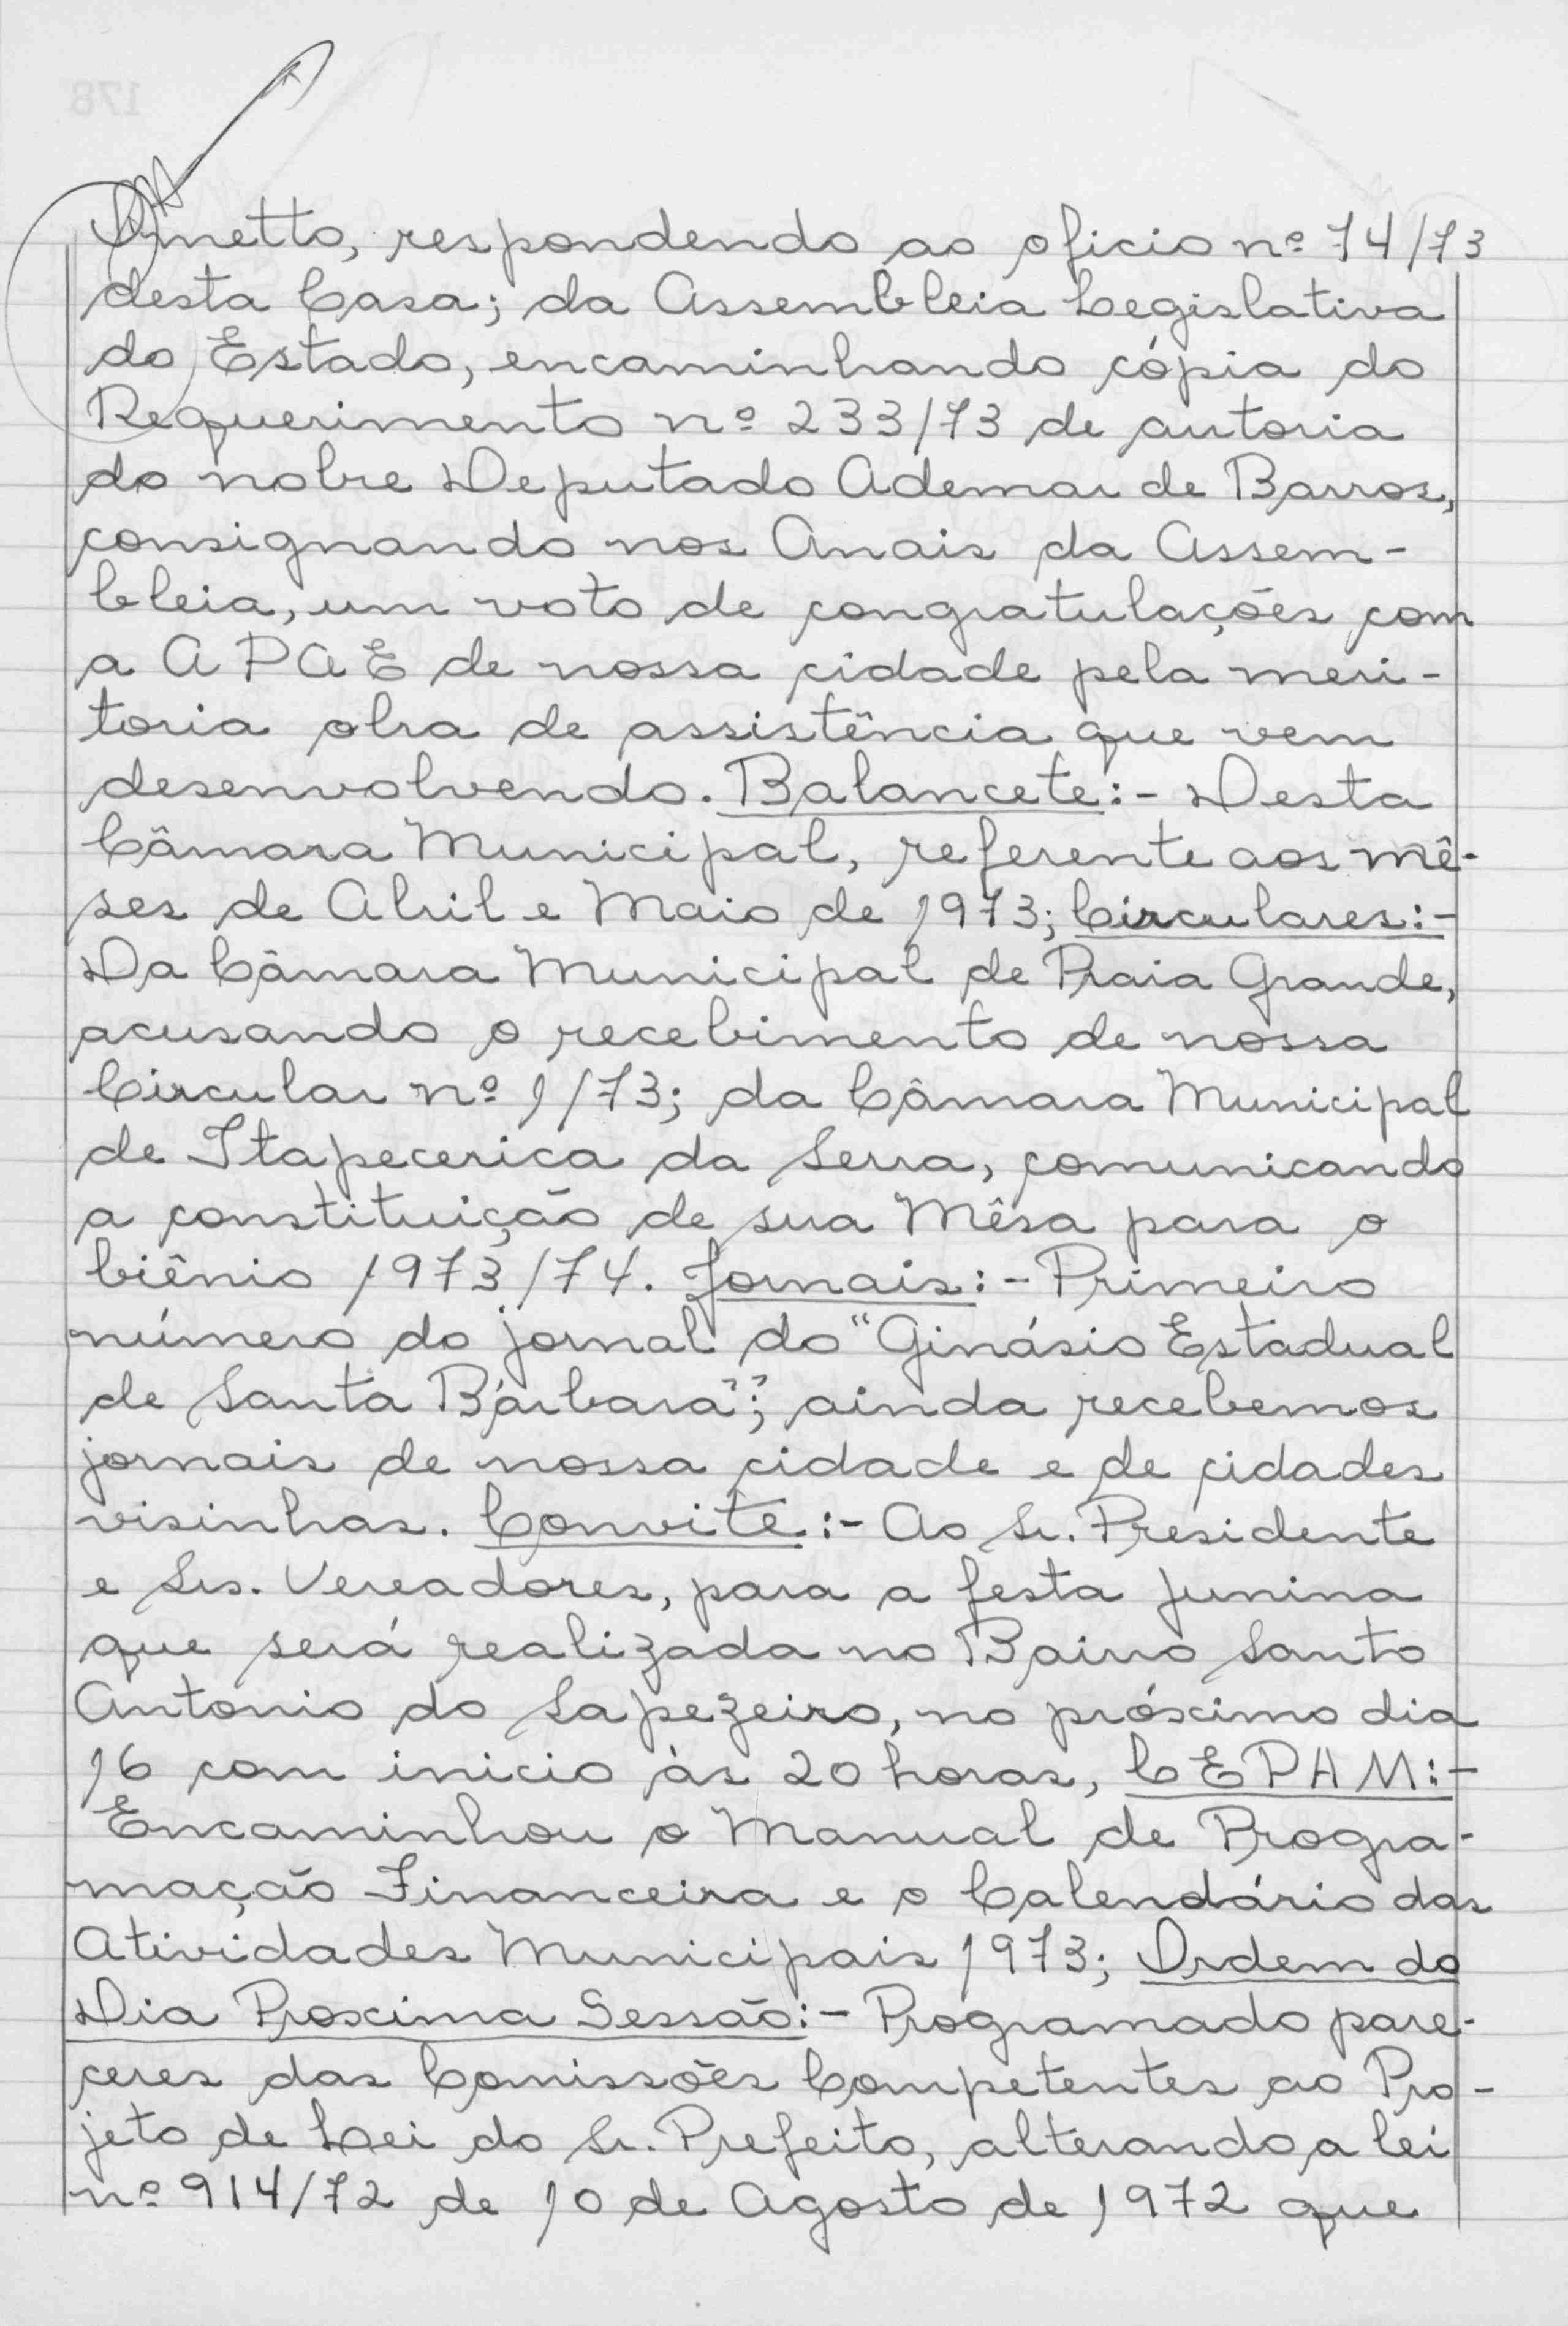 netto, respondendo ao oficio nº 74/73
desta Casa; da Assembleia Legislativa
do Estado, encaminhando cópia do
Requerimento nº 233/73 de autoria
do nobre Deputado Ademar de Barros,
consignando nos Anais da Assem-
bleia, um voto de congratulações com
a APAE de nossa cidade pela meri-
toria obra de assistência que vem
desenvolvendo. Balancete:- Desta
Câmara Municipal, referente aos mê-
ses de Abril e Maio de 1973; Circulares:-
Da Câmara Municipal de Praia Grande,
acusando o recebimento de nossa
Circular nº 1/73; da Câmara Municipal
de Itapecerica da Serra, comunicando
a constituição de sua Mêsa para o
biênio 1973/74. Jornais:- Primeiro
número do jornal do "Ginásio Estadual
de Santa Bárbara"; ainda recebemos
jornais de nossa cidade e de cidades
visinhas. Convite:- Ao Sr. Presidente
e Srs. Vereadores, para a festa junina
que será realizada no Bairro Santo
Antonio do Sapezeiro, no próximo dia
16 com inicio às 20 horas, CEPAM:-
Encaminhou o Manual de Progra-
mação Financeira e o Calendário das
Atividades Municipais 1973; Ordem do
Dia Proxima Sessão:- Programado pare-
ceres das Comissões Competentes ao Pro-
jeto de Lei do Sr. Prefeito, alterando a lei
nº 914/72 de 10 de Agosto de 1972 que